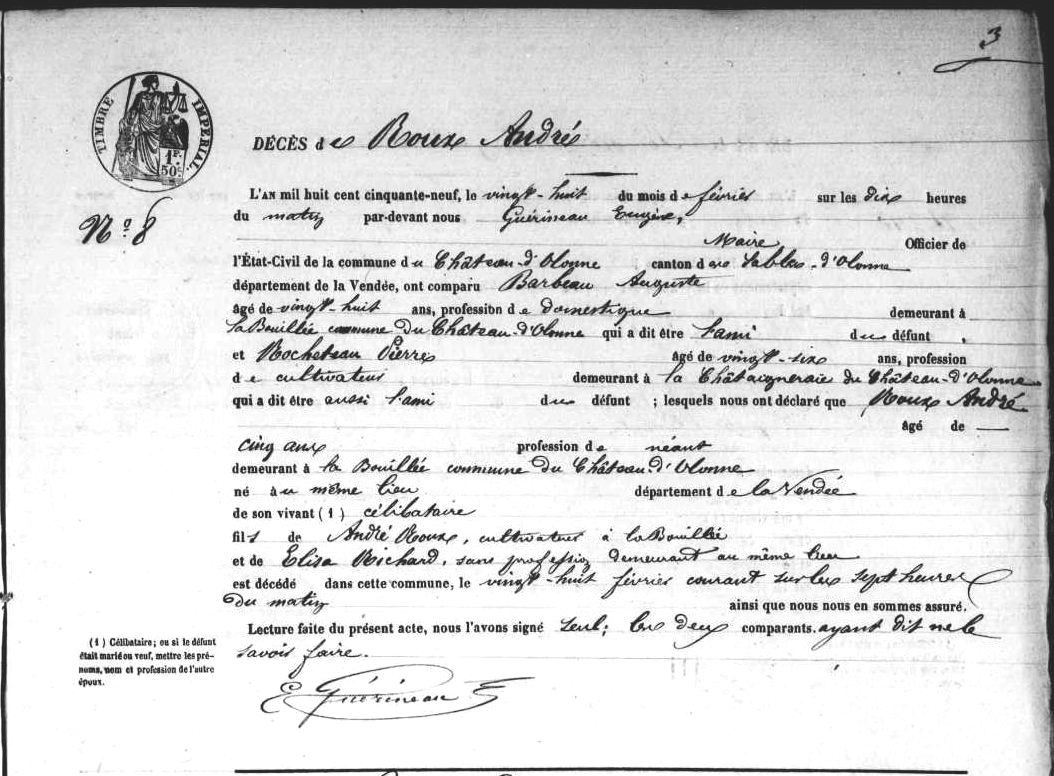 3
TIMBRE IMPÉRIAL
1F. 50c.
DÉCÈS de Roux André
L'AN mil huit cent cinquante-neuf, le vingt-huit du mois de février sur les dix heures
Nº 8
du matin par-devant nous Guérineau Eugène,
Maire Officier de
l'État-Civil de la commune du Château-d'Olonne canton des Sables-d'Olonne
département de la Vendée, ont comparu Barbeau Auguste
âgé de vingt-huit ans, profession de domestique demeurant à
la Bouillée commune du Château-d'Olonne qui a dit être l'ami du défunt ,
et Rocheteau Pierre âgé de vingt-six ans, profession
de cultivateur demeurant à la Châtaigneraie du Château-d'Olonne
qui a dit être aussi l'ami du défunt ; lesquels nous ont déclaré que Roux André
âgé de
cinq ans profession de néant
demeurant à la Bouillée commune du Château-d'Olonne
né au même lieu département de la Vendée
de son vivant (1) célibataire
fils de André Roux, cultivateur à la Bouillée
et de Elisa Richard, sans profession demeurant au même lieu
est décédé dans cette commune, le vingt-huit février courant sur les sept heures
du matin ainsi que nous nous en sommes assuré.
Lecture faite du présent acte, nous l'avons signé seul; les deux comparants ayant dit ne le
savoir faire.
(1) Célibataire; ou si le défunt
était marié ou veuf, mettre les pré-
noms, nom et profession de l'autre
époux.
E Guérineau